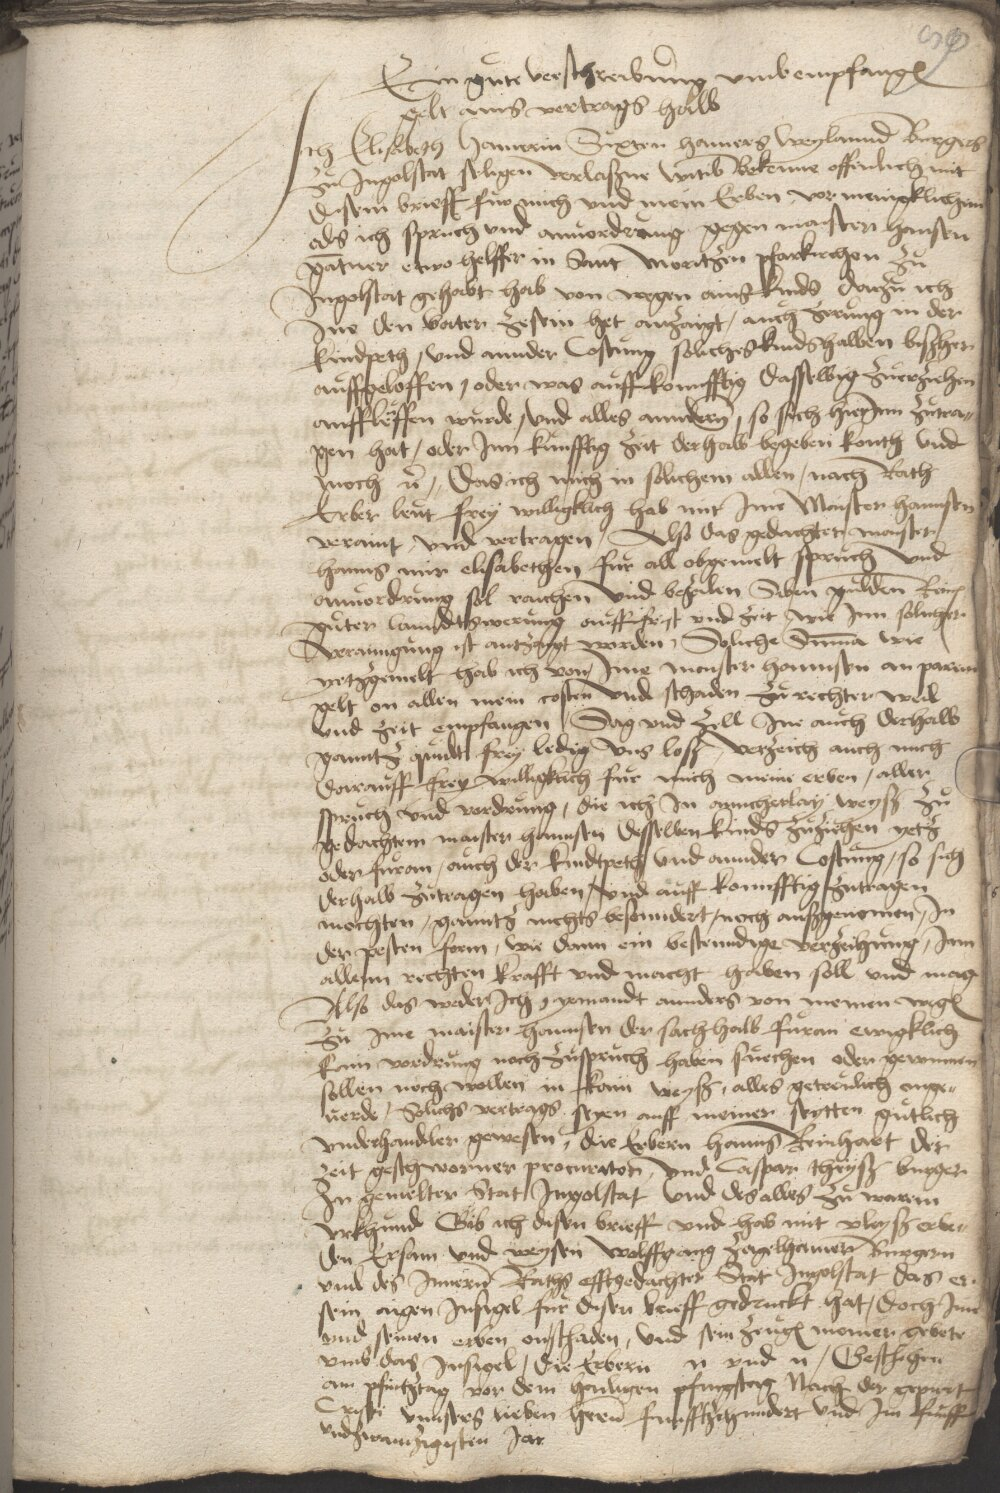 Ein gute verschreibung umb empfangen
gelt ains vertrags halb
Ich Elisabeth Hamerin Sixten hamers weylannd Burgers
zu Ingolstat seligen verlaßne witib Bekenne offenlich mit
disem brieff fur mich und mein Erben vor menigklichem
als ich spruch und anvordrung gegen maister hansen
gatner etwo helffer in Sant Moritzen pfarkirchen zu
Ingolstat gehabt hab von wegen ains kinds darzu ich
Ine den vater zesein het anzaigt / auch zerung in der
kindpeth / und annder Costung solichs kinds halben bißher
auffgeloffen / oder was auff konnfftig dasselbig zuerziehen
auffleuffen wurde / und alles annders / so sich hierInn zutra-
gen hat / oder Inn kunfftig zeit derhalb begeben konth und
moch / Das ich mich in solichem allen / nach Rath
Erber leut frey willigklich hab mit Ime Maister hannsen
veraint und vertragen / Also das gedachter maister
hanns mir elisabethen fur all obgemelt spruch und
anvordrung sol raichen und bezalen Siben gulden Rein
guter lanndtswerung auff frist und zeit wie Inn solicher
verainigung ist antzaigt worden / Soliche Suma wie
yetzgemelt hab ich von Ime maister hannsen an parem
gelt on allen mein costen und schaden zu rechter weil
und zeit empfangen / Sag und Zell Ine auch derhalb
ganntz quidt frey ledig uns loß / verzeich auch mich
darauff frey willigklich fur mich meine erben / aller
spruch und vordrung / die ich In ainicherlay weyß zu
gedachtem maister hannsen desselben kinds zuziehen yetz
oder furan / auch der kindtpeth und annder Costung / so sich
derhalb zutragen haben / und auff konnfftig zutragen
mochten / ganntz nichts besonndert / noch außgenomen / In
der pesten form / wie dann ein bestenndige verzeihung / Inn
allenn rechten krafft und macht haben soll und mag
Also das weder Ich / yemandt annders von meinen wegen
zu Ime maister hannsen der sach halb furan ewigklich
kain vordrung noch zuspruch haben suechen oder gewinnen
sollen noch wollen in kain weyß / alles getreulich onge-
verde / Solichs vertrags seyen auff meiner seytten gutlich
underhandler gewesen / die Erbern hanns Reinhart der
zeit geschworner procurator / und Caspar burger
In gemelter Stat Ingolstat und des alles zu warem
urkhund Gib ich disen brieff und hab mit vleyß erbe-
den Ersam und weysen wolffgang Zagelhamer Burgern
und des Innern Raths efftgedachter Stat Ingolstat das er
sein aigen Insigel fur disen brieff gedruckt hat / doch Ime
und seinen erben onschaden / und sein zeugen meiner gebete
umb das Insigel / die Erbern n und n / Geschehen
am pfintztag vor dem hailigen pfingstag Nach der gepurt
Cristi unnsers lieben herrn funfftzehundert und Im funff
undzwanzigisten Jar